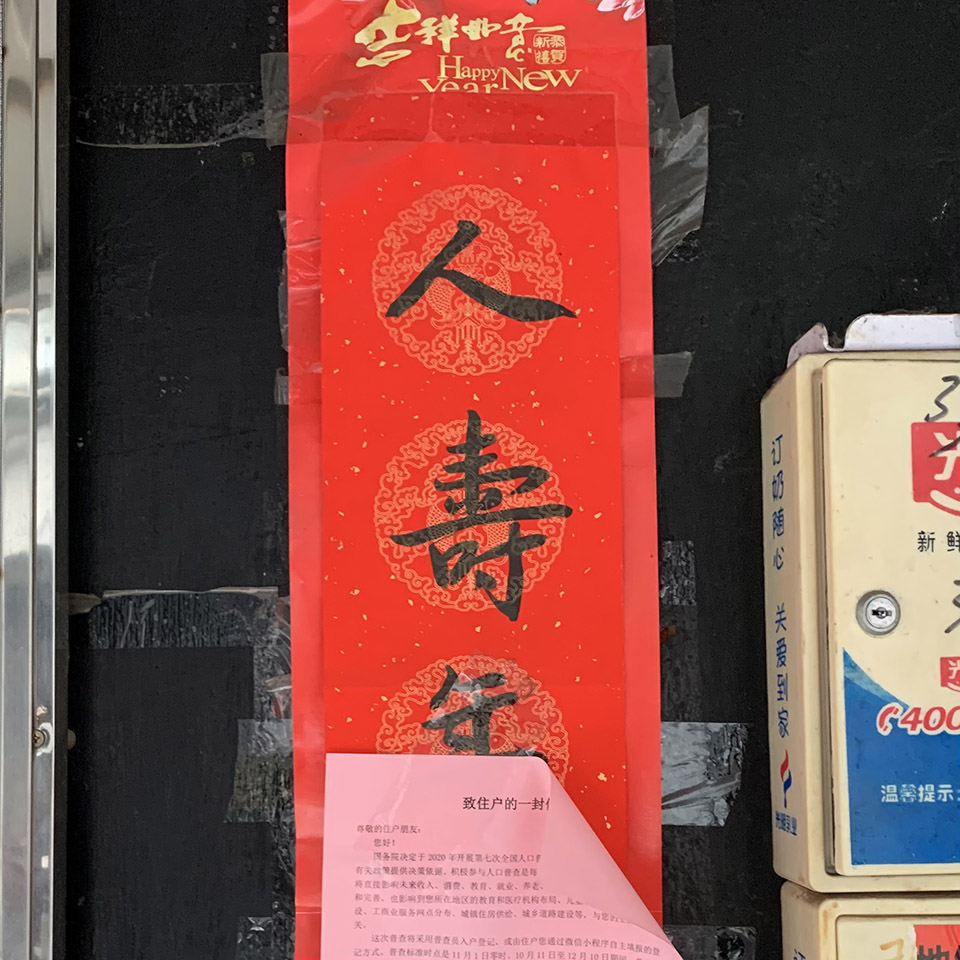 吉祥如意
恭贺
新禧
Happy
New
Year
人
寿
年
致住户的一封
尊敬的住户朋友：
您好！
国务院决定于2020年开展第七次全国人口
有关政策提供决策依据，积极参与人口普查是每
将直接影响未来收入、消费、教育、就业、养老、
和完善，也影响到您所在地区的教育和医疗机构布局、儿
设、工商业服务网点分布、城镇住房供给、城乡道路建设等，与您的
关。
这次普查将采用普查员入户登记、或由住户您通过微信小程序自主填报的登
记方式。普查标准时点是11月1日零时，10月11日至12月10日期间，
订奶随心 关爱到家
光明乳业
新鲜
400
温馨提示：